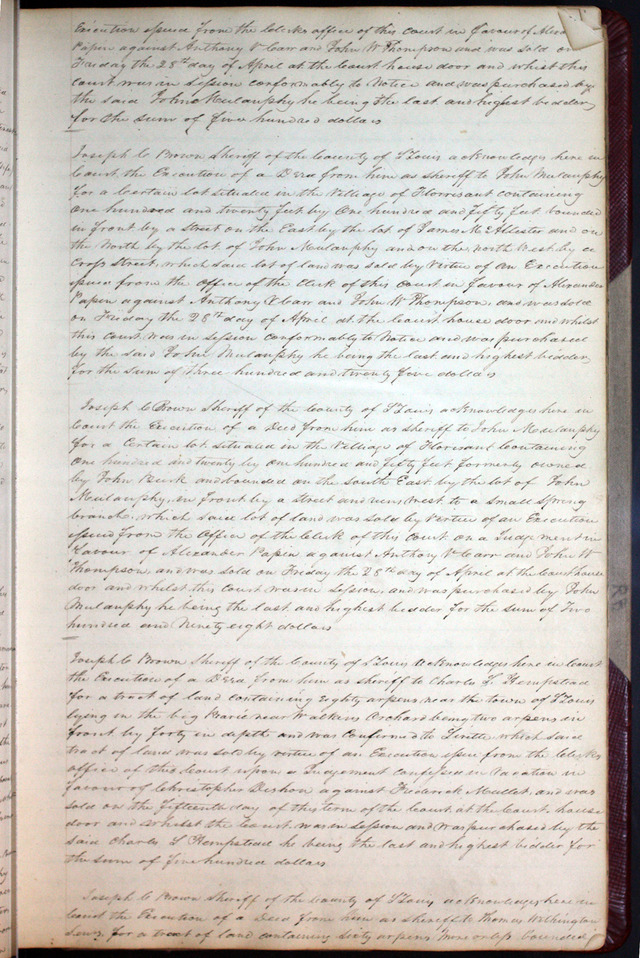 Execution issued from the Clerks office of this court in favour of Alexa
Papin against Anthony V Carr and John W Thompson and was sold on
Friday the 28th day of April at the Court house door and whilst this
court was in session conformably to Notice and was purchased by
the said John Mulanphy he being the last and highest bidder
for the sum of five hundred dollars
Joseph C Brown Sheriff of the County of St Louis acknowledges here in
Court the Execution of a Deed from him as sheriff to John Mulanphy
for a Certain lot situated in the Village of Florrisant containing
one hundred and twenty feet by One hundred and fifty feet bounded
in front by a Street on the East by the lot of James McAllester and on
the North by the lot of John Mulanphy and on the North West by a
Cross Street, which said lot of land was sold by Virtue of an Execution
issued from the office of the Clerk of this court in favour of Alexander
Papin against Anthony V Carr and John W Thompson and was sold
on Friday the 28th day of April at the Court house door and whilst
this court was in session conformably to Notice and was purchased
by the said John Mulanphy he being the last and highest bidder
for the sum of three hundred and twenty five dollars
Joseph C Brown Sheriff of the County of St Louis acknowledges here in
Court the Execution of a Deed from him as sheriff to John Mulanphy
for a Certain lot situated in the Village of Florisant Containing
one hundred and twenty by one hundred and fifty feet formerly owned
by John and bounded on the South East by the lot of John
Mulanphy, in front by a street and runs West to a small Spring
branch, which said lot of land was sold by Virtue of an Execution
issued from the office of the Clerk of this court on a Judgement in
favour of Alexander Papin against Anthony V Carr and John W
Thompson and was sold on Friday the 28th day of April at the Court house
door and whilst this court was in session, and was purchased by John
Mulanphy he being the last and highest bidder for the sum of Two
hundred and Ninety eight dollars
Joseph C Brown Sheriff of the County of St Louis acknowledges here in Court
the Execution of a Deed from him as sheriff to Charles S Hempstead
for a tract of land containing eighty arpens near the town of St Louis
lying in the big Prarie near Watkins Orchard being two arpens in
front by forty in depth and was Confirmed to which said
tract of land was sold by virtue of an Execution issue from the Clerks
office of this Court upon a Judgement confessed in Vacation in
favour of Christopher against Frederick and was
sold on the fifteenth day of this term of the Court at the Court house
door and whilst the Court was in session and was purchased by the
said Charles S Hempstead he being the last and highest bidder for
the sum of five hundred dollars
Joseph C Brown Sheriff of the County of St Louis acknowledges here in
Court the Execution of a Deed from him as sheriff to Thomas Withington
for a tract of land containing sixty arpens more or less bounded